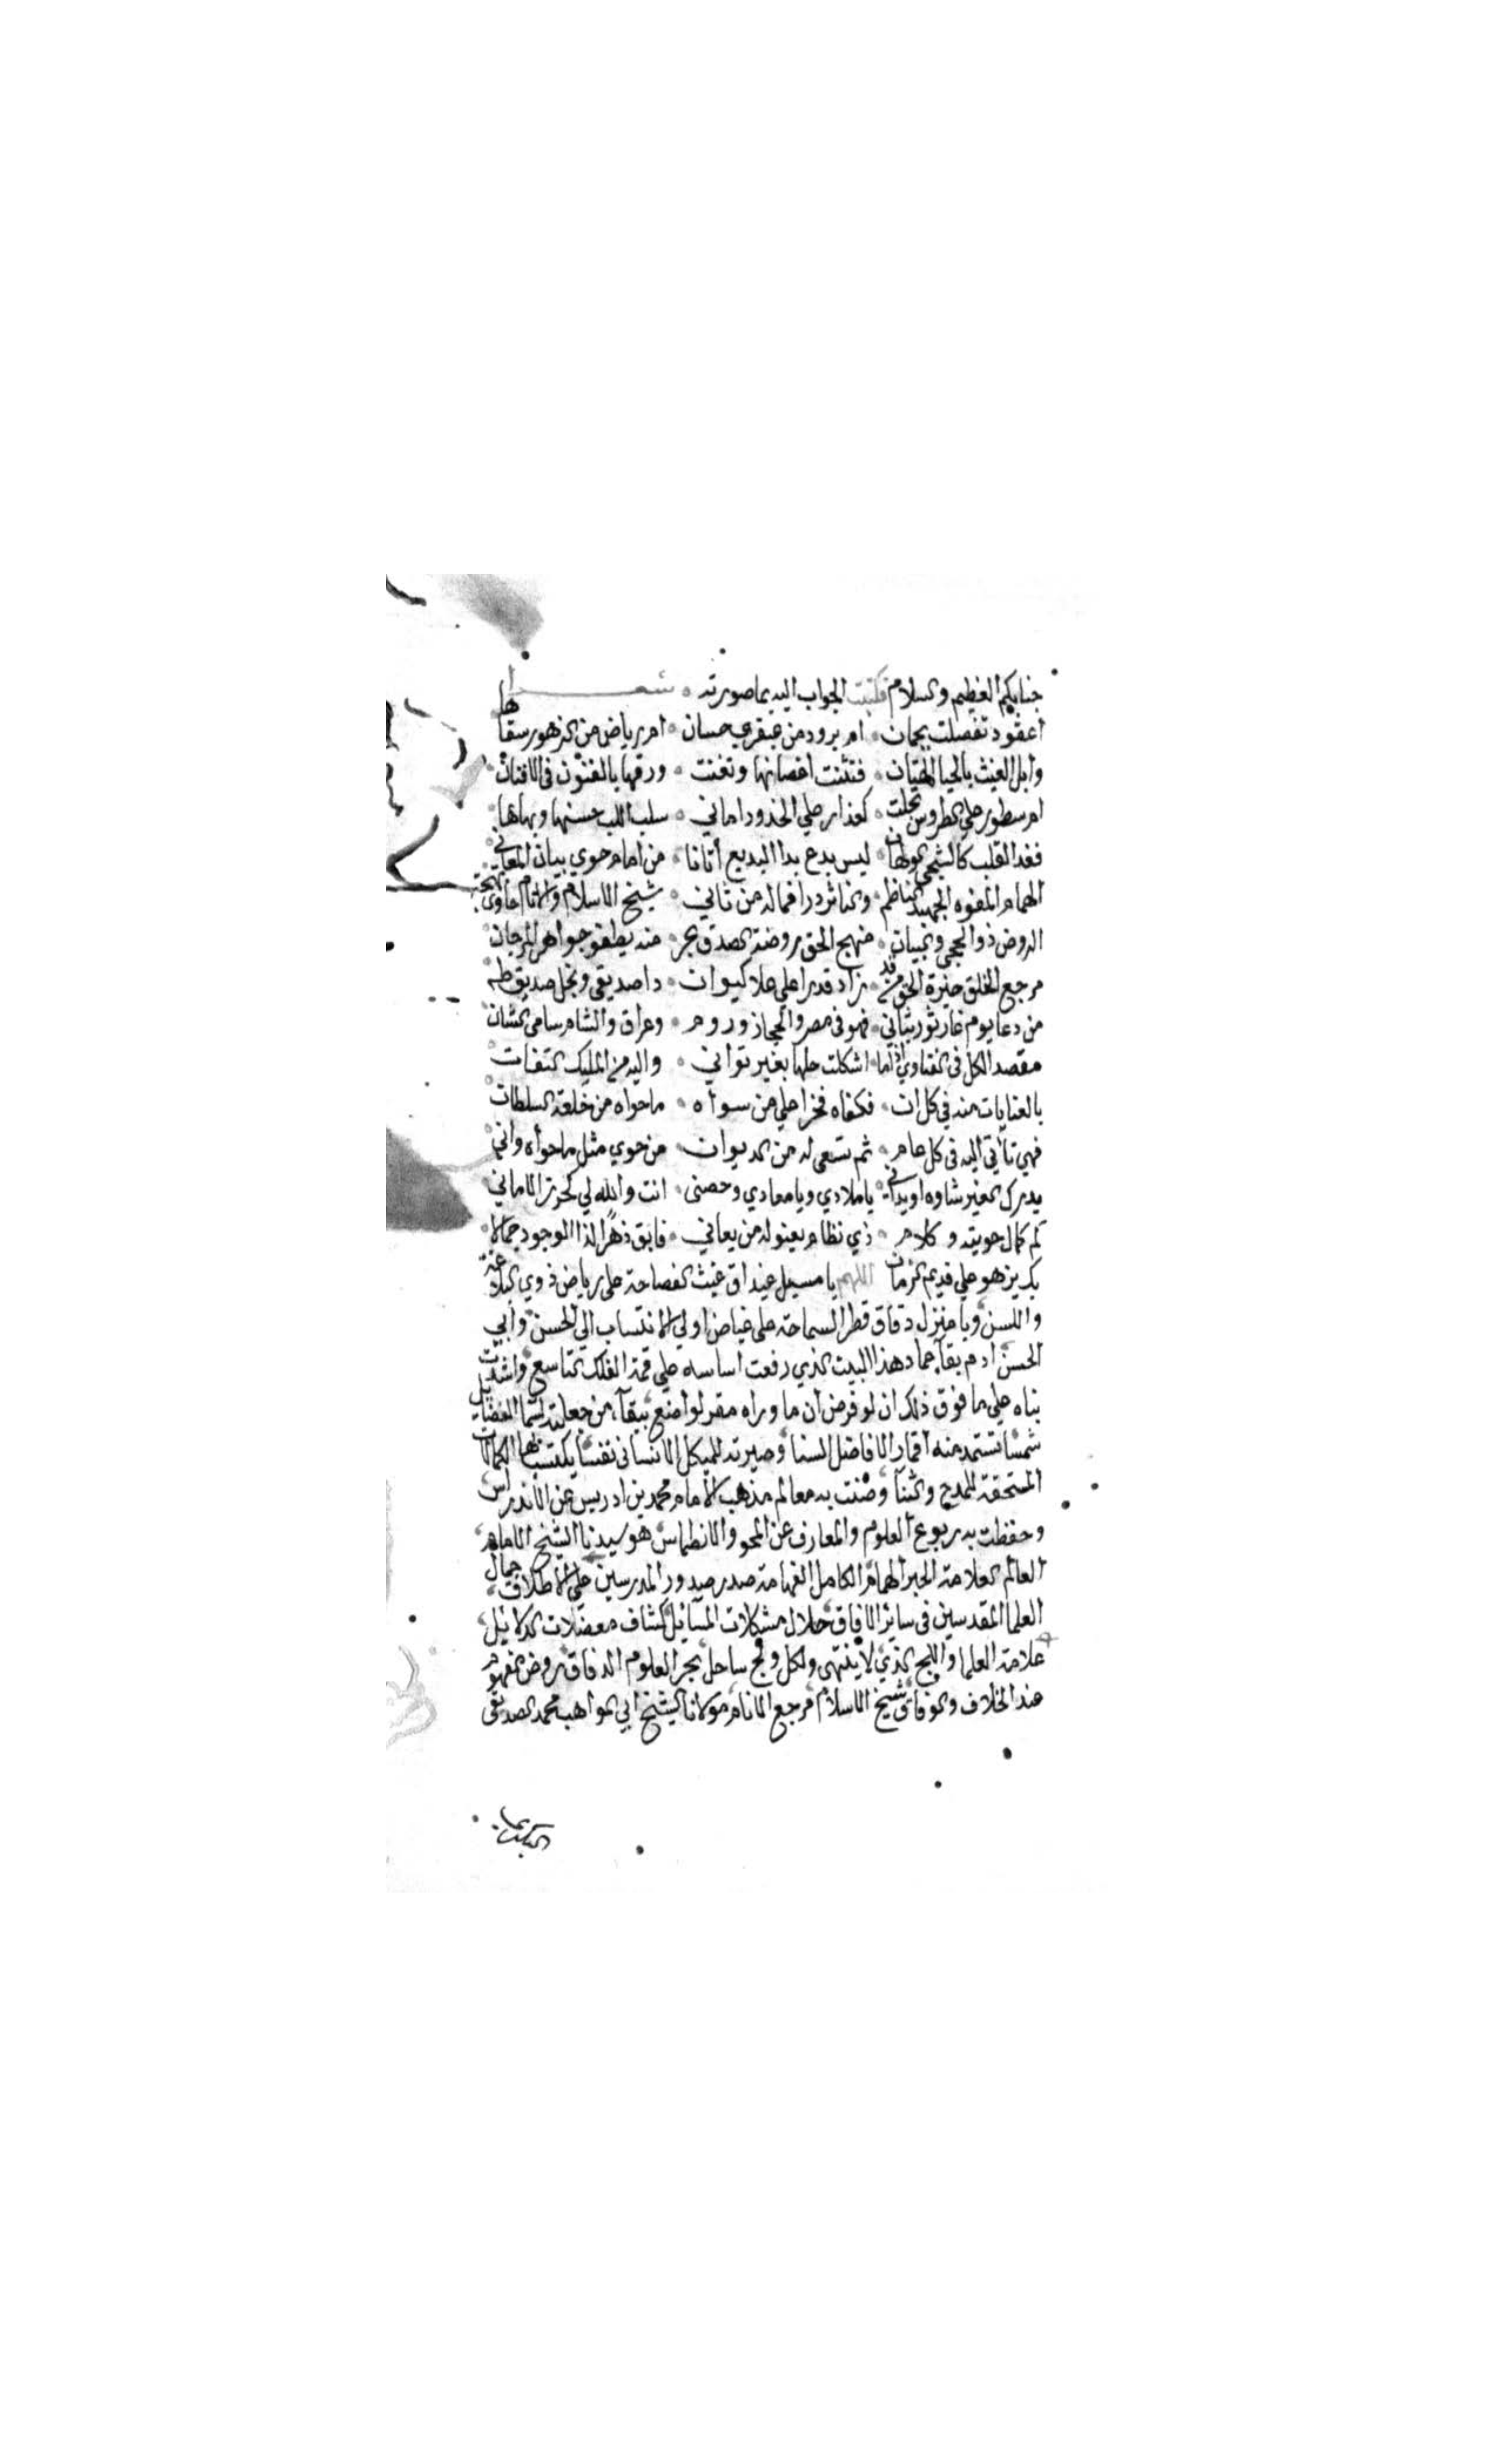 جنابكم العظيم والسلام فكتبت الجواب اليه بما صورته شعرا
أعقود تفصلت بجمان ام برود من عبقري حسان ام رياض من الزهور سقاها
وابل الغيث بالحيا الهتان فتثنت اغصانها وتغنت ورقها بالفنون في الافنان
ام سطور على الطروس تجلت كعذار على الخدود اماني سلب اللب حسنها وبهاها
فغدا القلب كالشجي الولهان ليس بدع بدا البديع أتانا من امام حوى بيان المعاني
الهمام المفوه الجهبذ الناظم والناثر درا فماله من ثاني شيخ الاسلام والانام حاوى بهجة
الروض ذو الحجى والبيان منهج الحق روضة الصدق بحر منه يطفو جواهر المرجان
مرجع الخلق خيرة الحق من قد زاد قدرا على علا كيوان دا صديقي ونجل صديق طه
من دعا يوم غار ثور بثاني فهو في مصر والحجاز وروم وعراق والشام سامى الشان
مقصد الكل في الفتاوي اذا ما اشكلت حلها بغير تواني واليه من المليك التفات
بالعنايات منه في كل ان فكفاه فخرا على من سواه ما حواه من خلعة السلطان
فهي تأتي اليه في كل عام ثم تسعى له من الديوان من حوي مثل ما حواه واني
يدرك الغير شاوه او يداني يا ملادي ويا معادي وحصنى انت والله لي كحرز الاماني
كم كمال حويته وكلام ذي نظام يعنو له من يعاني فابق ذهرا لذا الوجود جمالا
بك يزهو على قديم الزمان اللهم يا مسيل غيداق غيث الفصاحة على رياض ذوي البلاغة
واللسن ويا منزل دقاق قطر السماحة على غياض اولي الانتساب الي الحسن وأبي
الحسن ادم بقآء عماد هذا البيت الذي رفعت اساسه على قمة الفلك التاسع واشدت
بناه على ما فوق ذلك ان لو فرض ان ما وراه مقر لواضع ببقآء من جعلته لسما الفضايل
شمسا تستمد منه اقمار الافاضل السنا وصيرته للهيكل الانساني نفسا يكتسب بها الكمالات
المستحقة للمدح والثنآ وصنت به معالم مذهب الامام محمد بن ادريس عن الاندراس
وحفظت به ربوع العلوم والمعارف عن المحو والانطماس هو سيدنا الشيخ الامام
العالم العلامة الحبر الهمام الكامل الفهامة صدر صدور المدرسين على الاطلاق جمال
العلما المقدسين في سائر الافاق حلال مشكلات المسائل كشاف معضلات الدلائل
علامة العلما واللج الذي لا ينتهي ولكل ولج ساحل بحر العلوم الدفاق روض الفهوم
عند الخلاف والوفاق شيخ الاسلام مرجع الانام مولانا الشيخ ابي المواهب محمد الصديقى